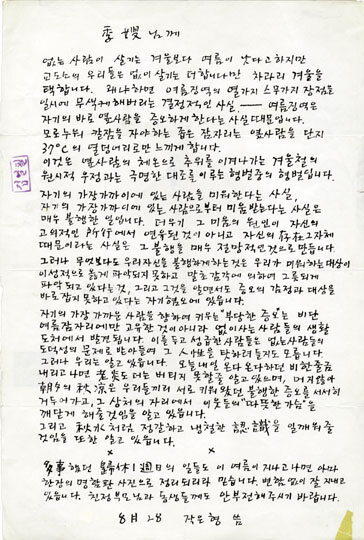 季嫂 님께
없는 사람이 살기는 겨울보다 여름이 낫다고하지만
교도소의 우리들은 없이 살기는 더합니다만 차라리 겨울을
택합니다. 왜냐하면 여름징역의 열가지 스무가지 장점을
일시에 무색케해버리는 결정적인 사실 ―― 여름징역은
자기의 바로 옆사람을 증오하게 한다는 사실 때문입니다.
모로누워 칼잠을 자야하는 좁은 잠자리는 옆사람을 단지
37℃의 열덩어리로만 느끼게 합니다.
이것은 옆사람의 체온으로 추위를 이겨나가는 겨울철의
원시적 우정과는 극명한 대조를 이루는 형벌중의 형벌입니다.
자기의 가장가까이에 있는 사람을 미워한다는 사실,
자기의 가장가까이에 있는 사람으로부터 미움받는다는 사실은
매우 불행한 일입니다. 더욱이 그 미움의 원인이 자신의
고의적인 所行에서 연유된 것이 아니고 자신의 存在 그자체
때문이라는 사실은 그 불행을 매우 절망적인것으로 만듭니다
그러나 무엇보다도 우리자신을 불행하게하는것은 우리가 미워하는대상이
이성적으로 옳게 파악되지못하고 말초감각에 의하여 그릇되게
파악되고 있다는것, 그리고 그것을 알면서도 증오의 감정과 대상을
바로잡지 못하고 있다는 자기혐오에 있습니다.
자기의 가장 가까운사람을 향하여 키우는 "부당한 증오"는 비단
여름잠자리에만 고유한것이아니라 없이사는사람들의 생활
도처에서 발견됩니다. 이를두고 성급한사람들은 없는사람들의
도덕성의 문제로 받아들여 그 人性을 탓하려들지도 모릅니다.
그러나 우리는 알고 있습니다. 오늘내일 온다온다하던 비한줄금
내리고나면 老炎도 더는 버티지 못할줄 알고있으며, 머지않아
朝夕의 秋凉은 우리들끼리 서로 키워왔던 불행한 증오를 서서히
거두어가고, 그 상처의 자리에서 이웃들의 "따뜻한 가슴"을
깨닫게 해줄것임을 알고 있습니다.
그리고 秋水처럼 정갈하고 냉철한 認識을 일깨워줄
것임을 또한 알고 있습니다.
× ×
多事했던 歸休1週日의 일들도 이 여름이 지나고나면 아마
한장의 명함판 사진으로 정리되리라 믿습니다. 변함없이 잘 지내고
있습니다. 친정부모님과 동생들께도 안부전해주시기 바랍니다.
8月 28 작은형 씀